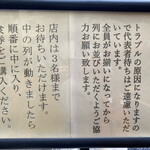 トラブルの原因になりますの
で代表者待ちはご遠慮いただ
いています。
全員がお揃いになってから
列にお並びいただくようご協
力お願い致します。
店内は３名様まで
お待ちいただけます。
中の列が動きましたら
順番に中に入り、
食券をご購入ください。